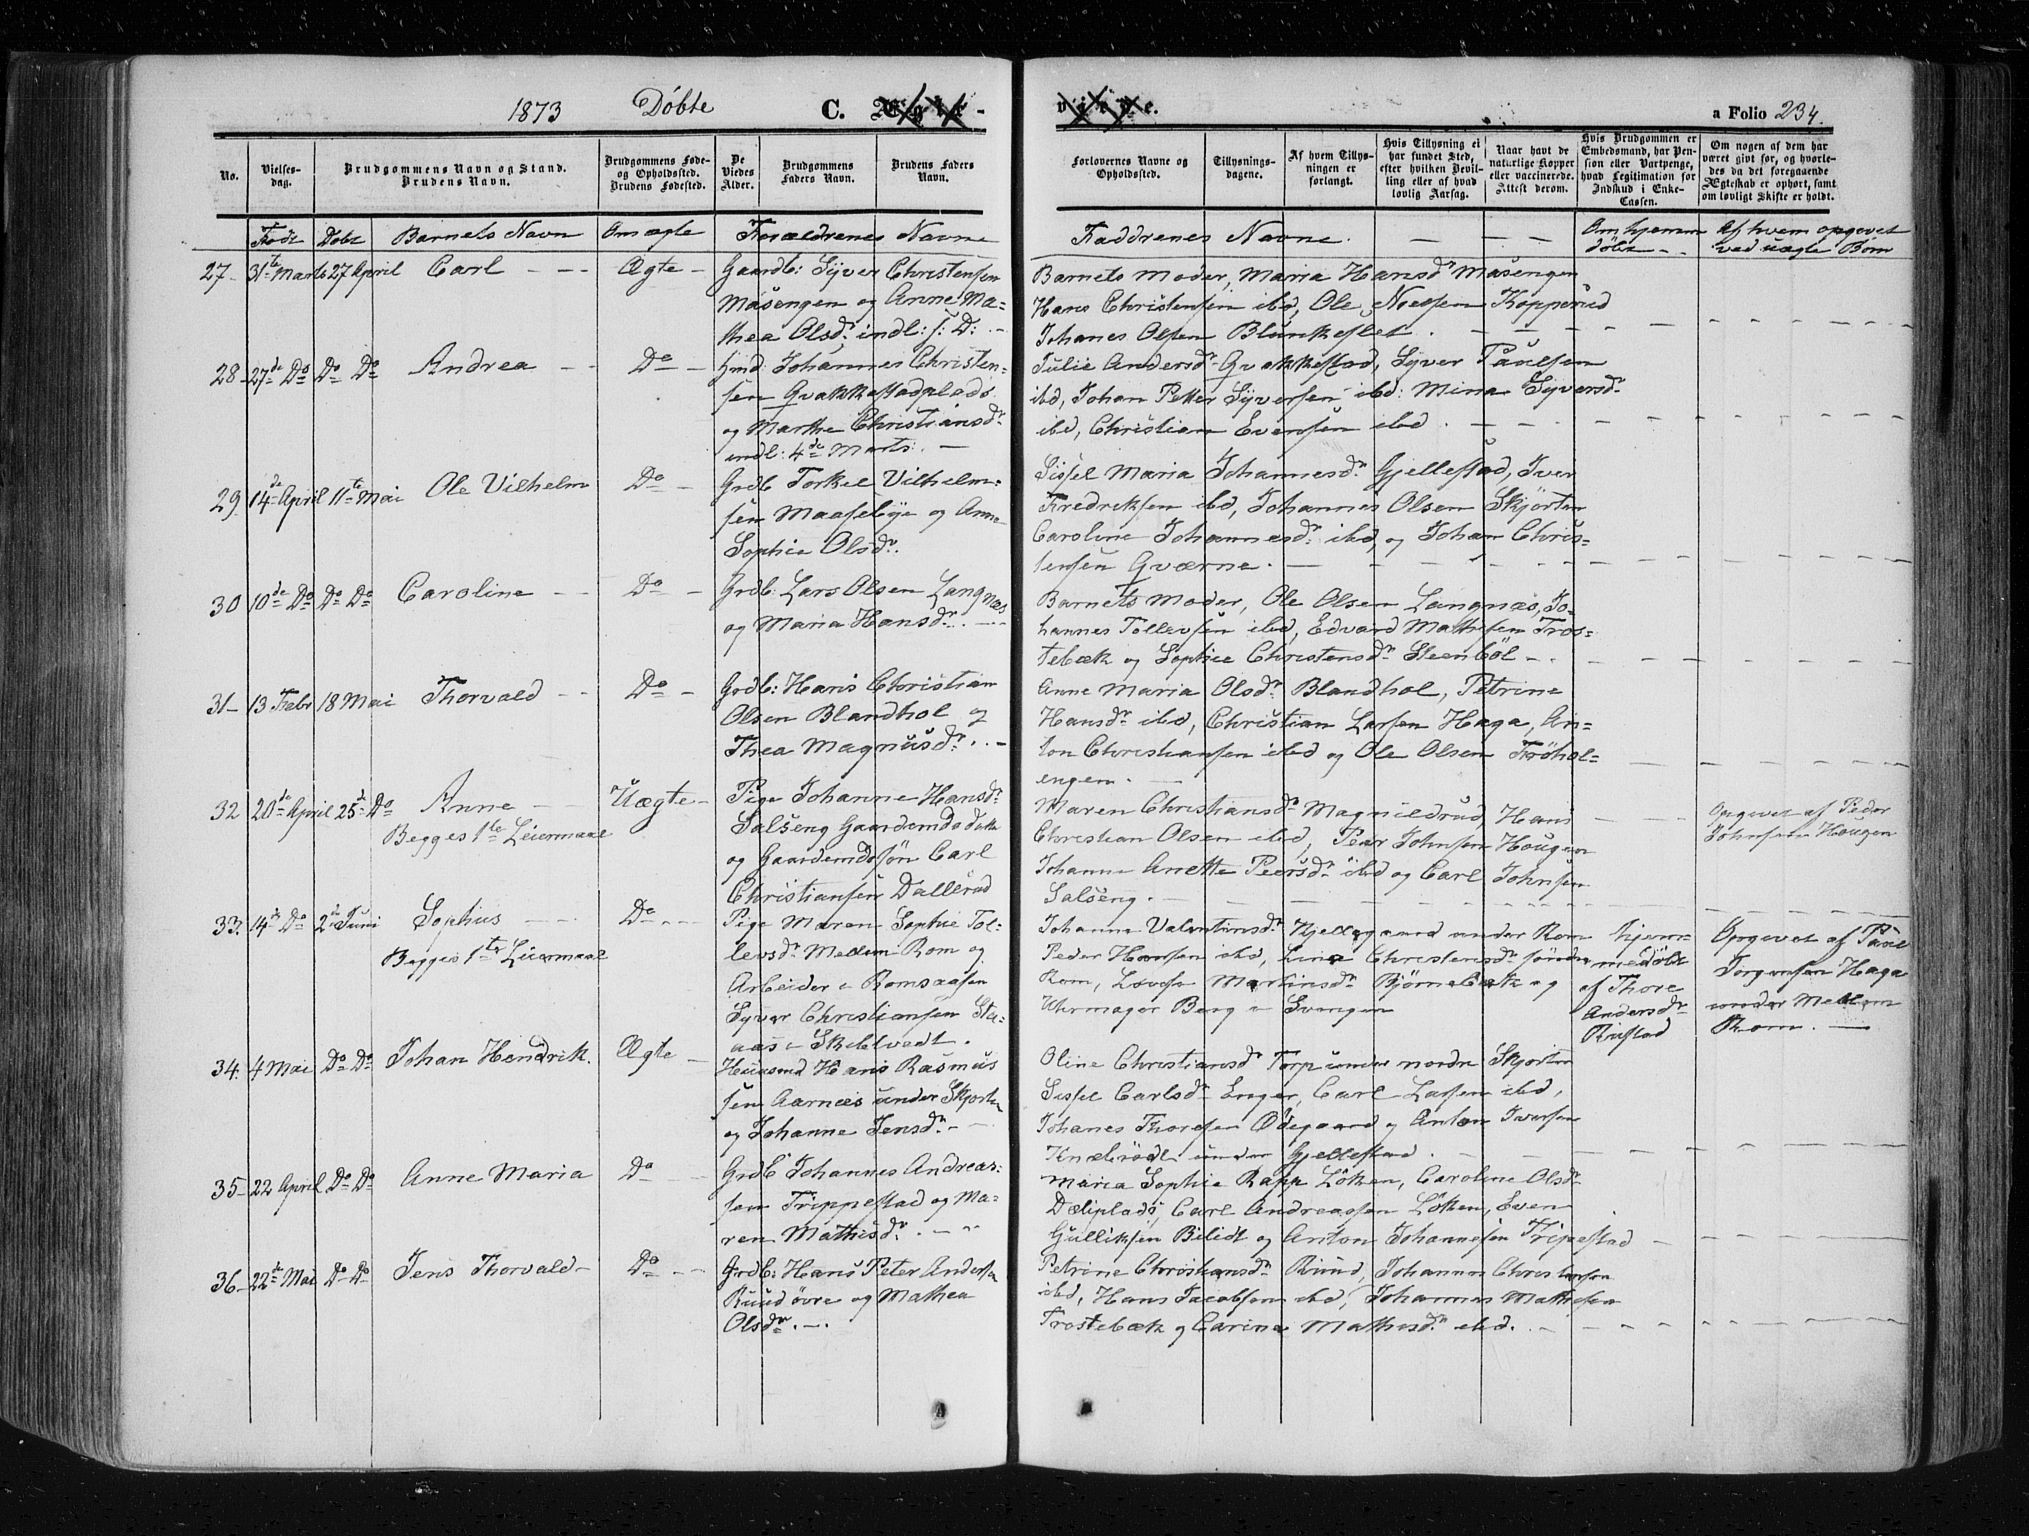 1873 Døbte C.
a Folio 234.
No.
Vielses-
dag.
Brudgommens Navn og Stand.
Brudens Navn.
Brudgommens Føde-
og Opholdssted.
Brudens Fødested.
De
Viedes
Alder.
Brudgommens
Faders Navn.
Brudens Faders
Navn.
Forlovernes Navne og
Opholdssted.
Tillysnings-
dagene.
Af hvem Tillys-
ningen er
forlangt.
Hvis Tillysning ei
har fundet Sted,
efter hvilken Bevil-
ling eller af hvad
lovlig Aarsag.
Naar havt de
naturlige Kopper
eller vaccinerede.
Attest derom.
Hvis Brudgommen er
Embedsmand, har Pen-
sion eller Vartpenge,
hvad Legitimation for
Indskud i Enke-
Cassen.
Om nogen af dem har
været gift før, og hvorle-
des da det foregaaende
Ægteskab er ophørt, samt
om lovligt Skifte er holdt.
Født Døbt Barnets Navn Om ægte Forældrenes Navne
Faddrenes Navne. — — —
Om hjemme
døbt - -
Af hvem opgivet
ved uægte Børn
27- 31te Marts 27 April Carl - - - Ægte -
Gaardb: Syver Christensen
Måsengen og Anne Ma-
thea Olsdr. indl: s: D: . -
Barnets Moder, Maria Hansdr Måsengen
Hans Christensen ibd, Ole Noessen Kopperud
Johanes Olsen Blunkeflet . - - -
28 27de Do Do Do Andrea - - Do -
Hmd: Johannes Christen-
sen Qvakkestadplads
og Marthe Christiansdr
indl: 4de Marts. -
Julie Andersdr Qvakkestad, Syver Paulsen
ibd, Johan Petter Syversen ibd: Mina Syversdr
ibd, Christian Evensen ibd. - - -
29. 14de April 11te Mai Ole Vilhelm Do -
Grdb Torkel Vilhelm-
sen Maasebye og Anne
Sophie Olsdr.
Sissel Maria Johannesdr Gjellestad, Iver
Fredriksen ibd, Johannes Olsen Skjørten
Caroline Johannesdr ibd, og Johan Chris-
tensen Qværne. - - -
30 10de Do Do Do Caroline - - Do -
Grdb: Lars Olsen Langnæs
og Maria Hansdr. - -
Barnets Moder, Ole Olsen Langnæs, Jo-
hannes Tollevsen ibd, Edvard Mathisen Tros-
tebæk og Sophie Christensdr Steenbøl - -
31- 13 Febr 18 Mai Thorvald - - Do -
Grdb: Hans Christian
Olsen Blandhol og
Thea Magnusdr. . -
Anne Maria Olsdr Blandhol, Petrine
Hansdr ibd, Christian Larsen Haga, An-
ton Christiansen ibd og Ole Olsen Frøhol-
engen. -
32 20de April 25de Do Anne - - Uægte -
Begges 1te Leiermaal
Pige Johanne Hansdr
Salseng Gaardmdsdatte
og Gaardmdssøn Carl
Christiansen Dallerud
Maren Christiansdr Magnildrud, Hans
Christian Olsen ibd, Peder Johnsen Hougen
Johanne Anette Peersdr ibd og Carl Johnsen
Salseng. - - -
Opgivet af Peder
Johnsen Hougen
33. 14de Do 2de Juni Sophus - - - Do - - -
Begges 1te Leiermaal
Pige Maren Sophie Tol-
levsdr Mellem Rom og
Arbeider i Romsaasen
Syver Christiansen Sta-
aas i Skibtvedt.
Johanne Valentinsdr Kjellegaard under Rom
Peder Hansen ibd, Line Christensdr søndre
Rom, Martinsdr Bjørnebæk og
Uhrmager Berg i Svengen
hjem-
medøbt
af Thore
Andersdr
Rustad
Opgivet af Paul
Jørgensen Haga
under Mellem
Rom. -
34. 4 Mai Do Do Johan Hendrik. Ægte -
Huusmd Hans Rasmus
sen Aarnæs under Skjørten
og Johanne Jensdr - -
Oline Christiansdr Torp under nordre Skjørten
Sissel Carlsdr Enger, Carl Larsen ibd,
Johanes Thoresen Ødegaard og Anton Iversen
Knabrødt under Gjellestad. - - -
35- 22 April Do Do Anne Maria Do
Grdb Johannes Andreas-
sen Trippestad og Ma-
ren Mathisdr. - -
Maria Sophie Rapp Løken, Caroline Olsdr
Dæliplads, Carl Andreassen Løken, Even
Gulliksen Bilidt og Anton Johannesen Tripestad
36- 22de Mai Do Do Jens Thorvald - Do - -
Grdb: Hans Peter Andersen
Ruud øvre og Mathea
Olsdr. -
Petrine Christiansdr Ruud, Johannes Christensen
ibd, Hans Jacobsen ibd, Johannes Mathisen
Trostebæk og Carine Mathisdr ibd. - -